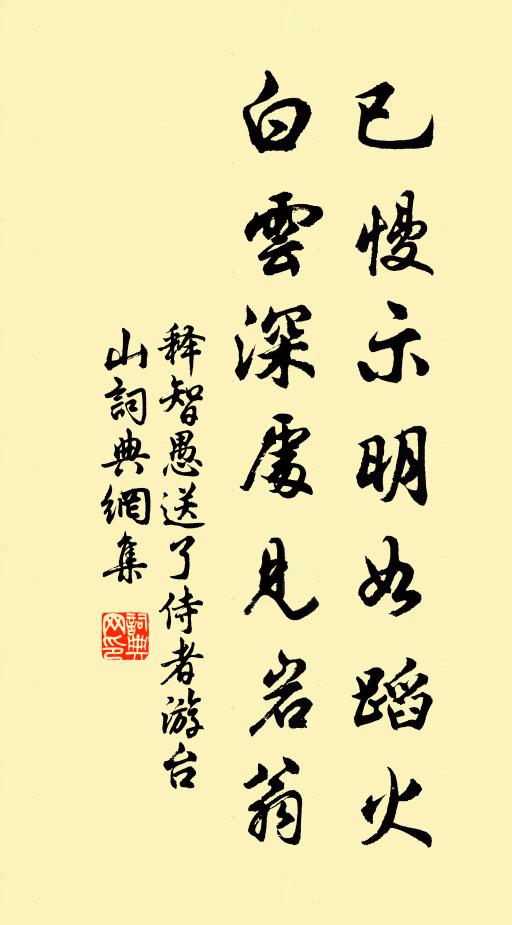 已慢示明如蹈火
白雲深處見岩翁
释智愚送了侍者游台
山詞典網集
詞典网印